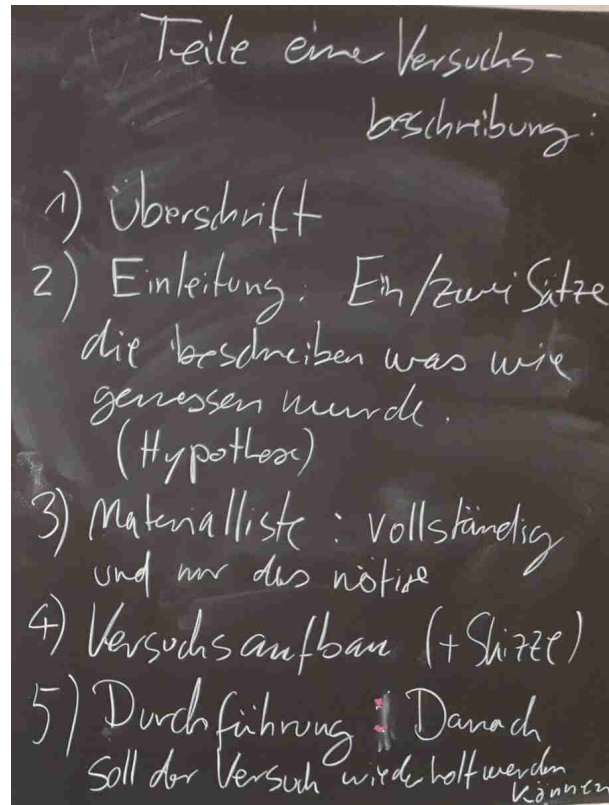 Teile einer Versuchs-
beschreibung:
1) Überschrift
2) Einleitung: Ein/zwei Sätze
die beschreiben was wie
gemessen wurde.
(Hypothese)
3) Materialliste: vollständig
und nur das nötige
4) Versuchsaufbau (+ Skizze)
5) Durchführung: Danach
soll der Versuch wiederholt werden
können